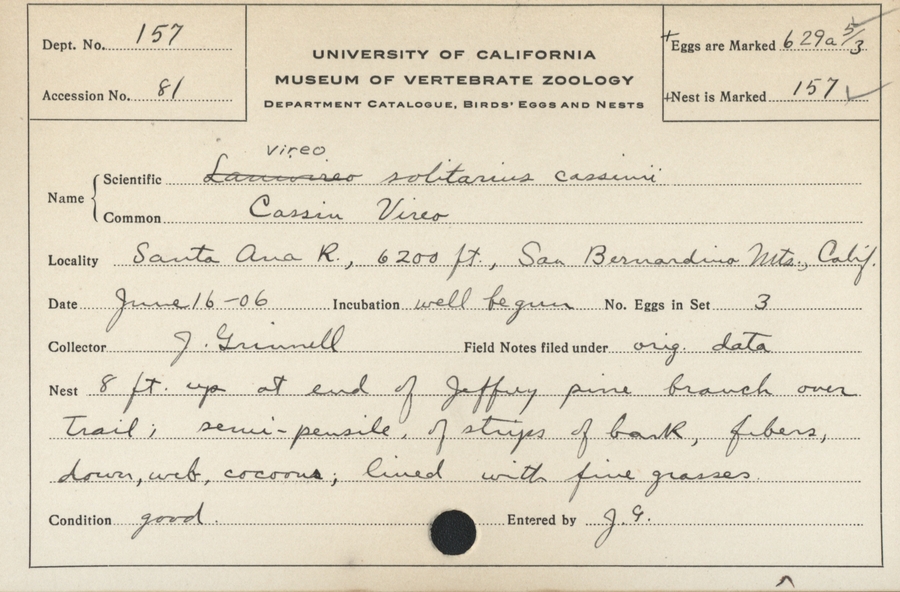 Dept. No. 157
Accession No. 81
UNIVERSITY OF CALIFORNIA
MUSEUM OF VERTEBRATE ZOOLOGY
DEPARTMENT CATALOGUE, BIRDS' EGGS AND NESTS
+Eggs are Marked 629a 5/3
+Nest is Marked 157 ✓
vireo
Name
Scientific Lanivireo solitarius cassinii
Common Cassin Vireo
Locality Santa Ana R., 6200 ft., San Bernardino Mts., Calif.
Date June 16-06 Incubation well begun No. Eggs in Set 3
Collector J. Grinnell Field Notes filed under orig. data
Nest 8 ft. up at end of Jeffrey pine branch over
trail; semi-pensile, of strips of bark, fibers,
down, web, cocoons; lined with fine grasses
Condition good. Entered by J.G.